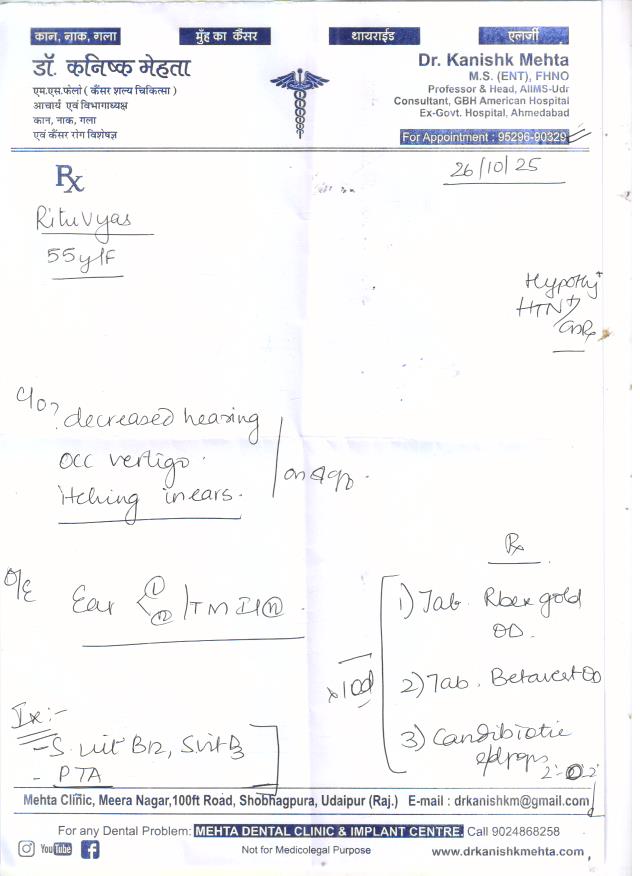 कान, नाक, गला
मुँह का कैंसर
थायराईड
एलर्जी
डॉ. कनिष्क मेहता
एम.एस.फेलो ( कैंसर शल्य चिकित्सा )
आचार्य एवं विभागाध्यक्ष
कान, नाक, गला
एवं कैंसर रोग विशेषज्ञ
Dr. Kanishk Mehta
M.S. (ENT), FHNO
Professor & Head, AIIMS-Udr
Consultant, GBH American Hospital
Ex-Govt. Hospital, Ahmedabad
For Appointment : 95296-90329
26/10/25
Rx
Ritu Vyas
55y/F
Hypothy+
HTN+
C/o ? decreased hearing
occ vertigo.
Itching in ears.
O/E
Ear
TM
Ix:-
- S. vit B12, S vit D3
- PTA
Rx
1) Tab. Rbex gold
OD.
2) Tab. Betavert OD
3) Candibiotic
e/drops
2-0-2
x10d
Mehta Clinic, Meera Nagar,100ft Road, Shobhagpura, Udaipur (Raj.) E-mail : drkanishkm@gmail.com
For any Dental Problem: MEHTA DENTAL CLINIC & IMPLANT CENTRE. Call 9024868258
YouTube
Not for Medicolegal Purpose
www.drkanishkmehta.com